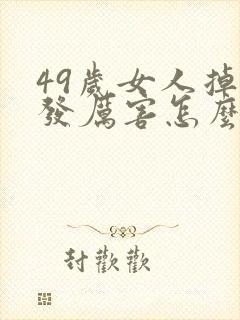 49歲女人掉
發厲害怎麼
封歡歡